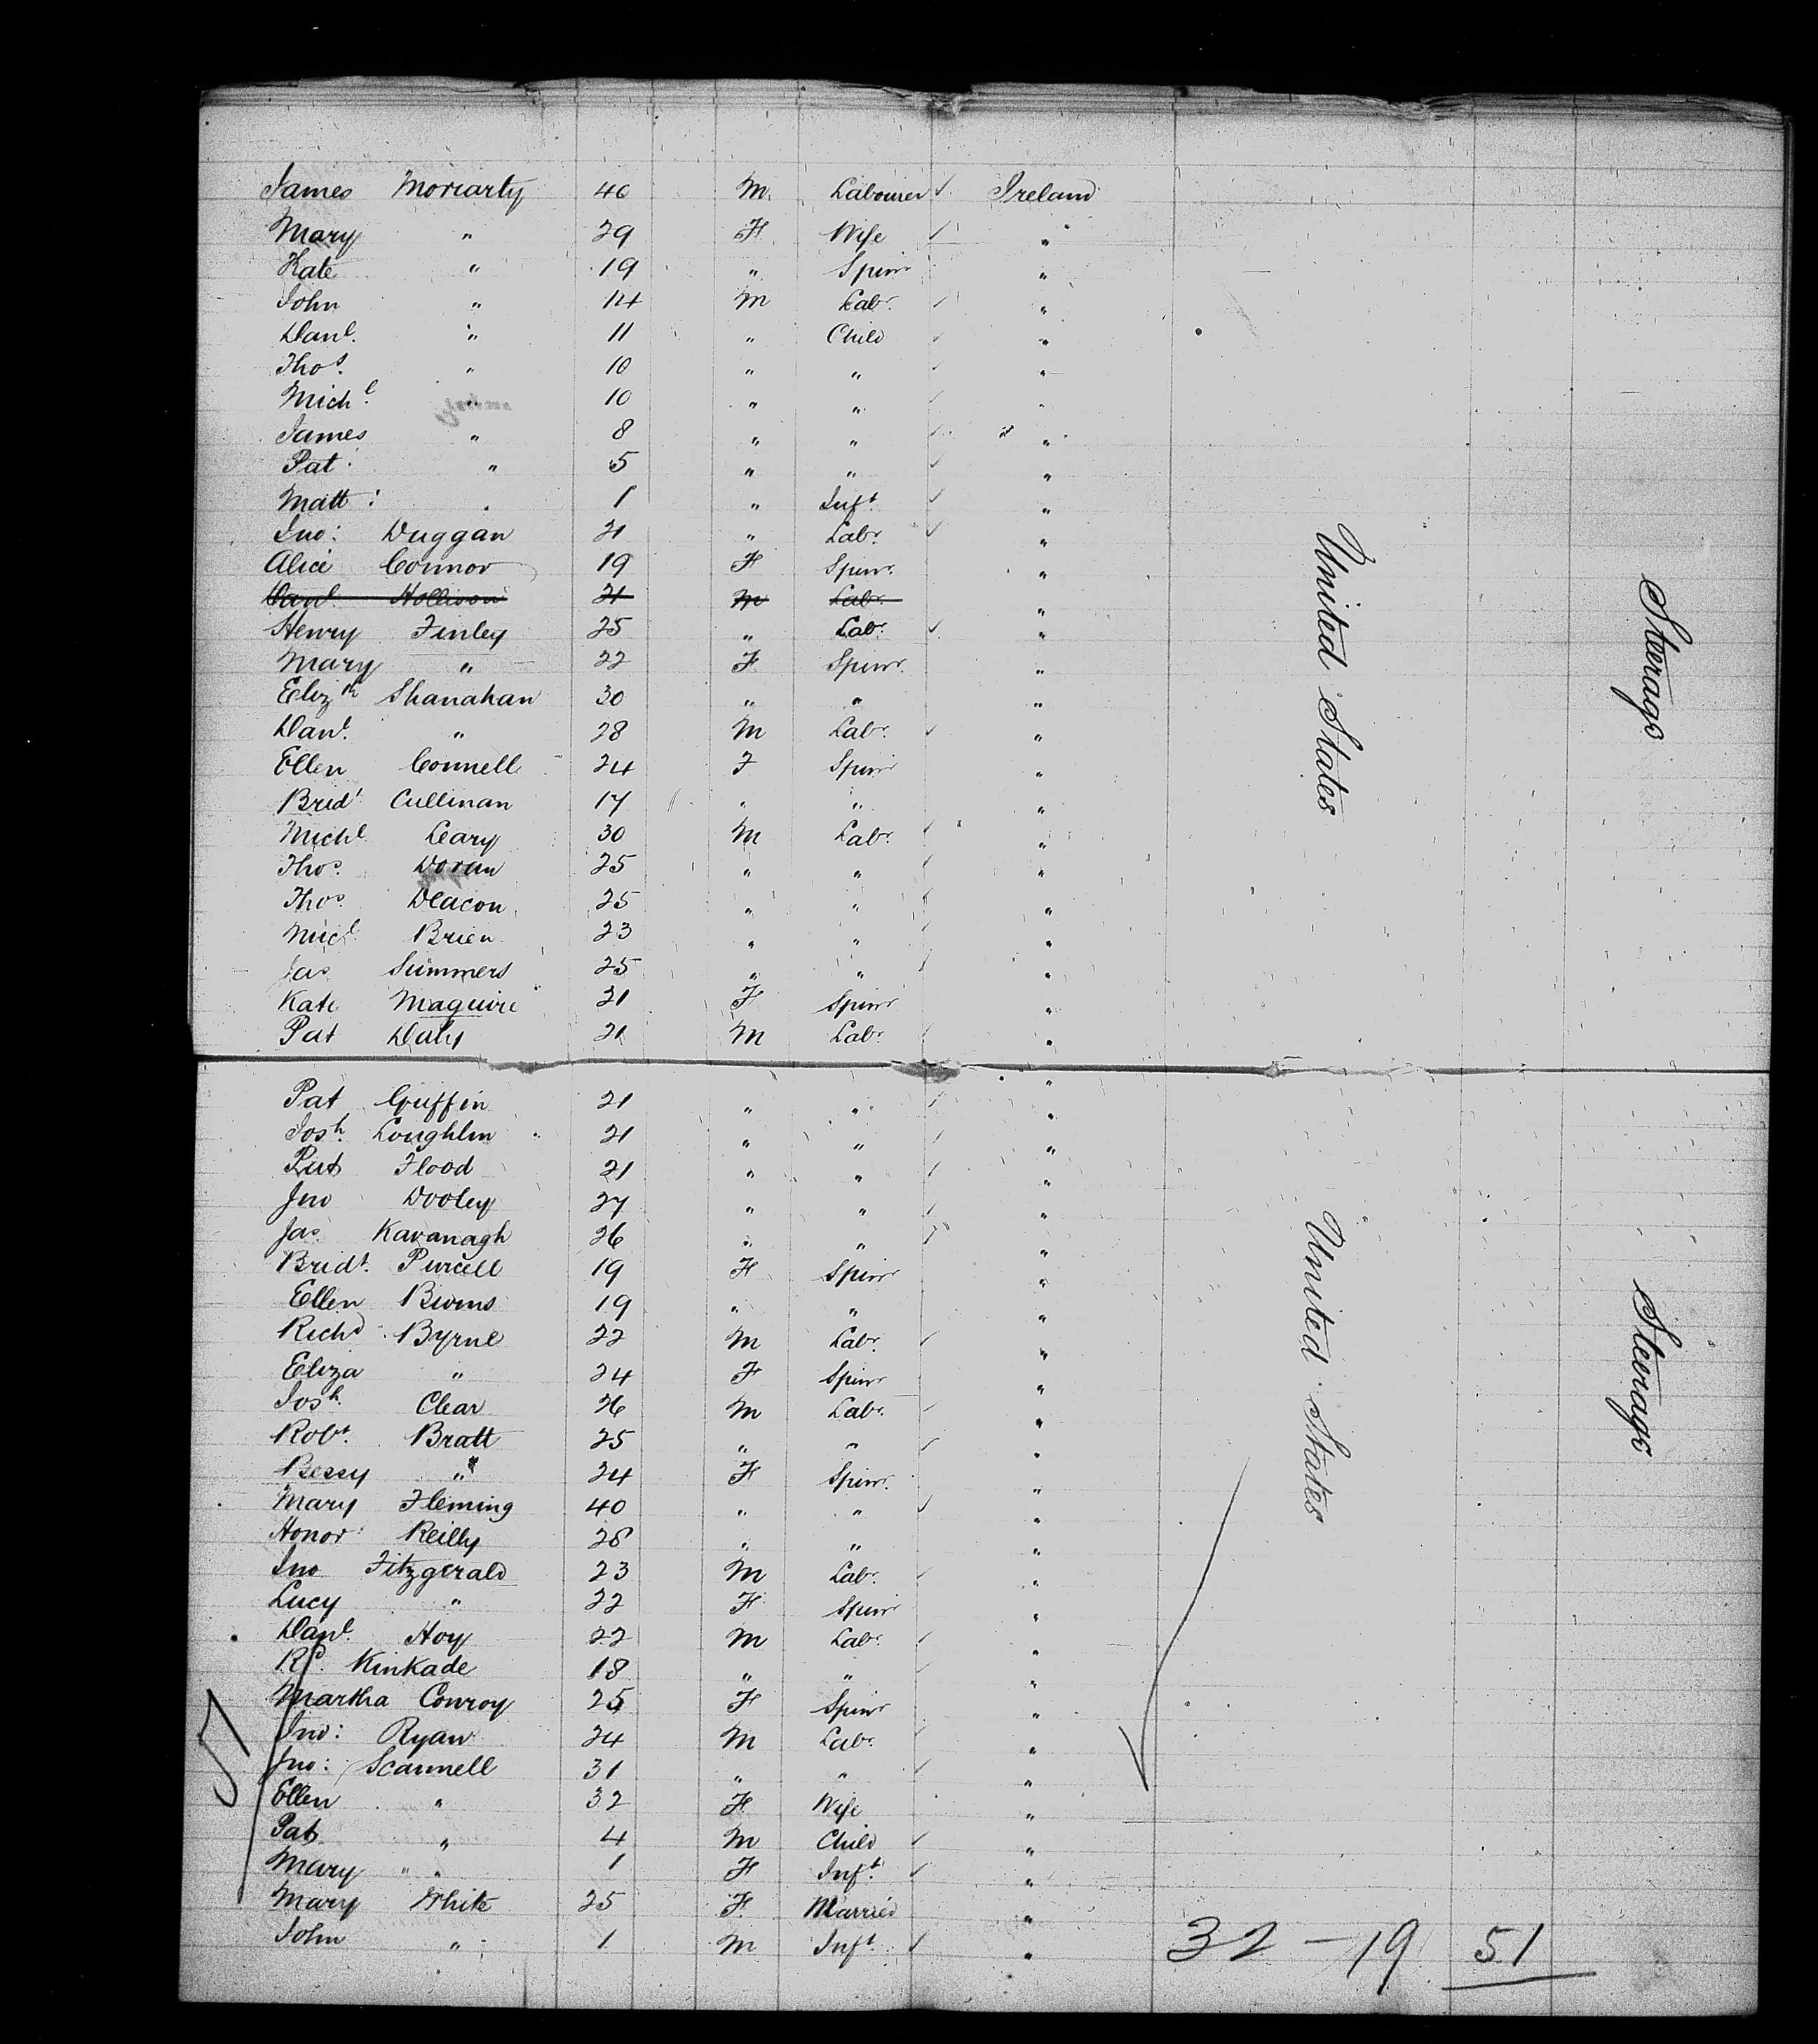 James Moriarty 40 M Labourer ✓ Ireland
Mary " 29 F Wife ✓ "
Kate " 19 " Spinr "
John " 14 M Labr. ✓ "
Danl. " 11 " Child ✓ "
Thos. " 10 " " ✓ "
Michl. " 10 " " ✓ "
James " 8 " " ✓ " "
Pat " 5 " " ✓ "
Matt: " 1 " Inft. ✓ "
Jno: Duggan 21 " Labr. ✓ "
Alice Connor 19 F Spinr. "
Danl. 21 M Labr. "
Henry Finley 25 " Labr. ✓ "
Mary " 22 F Spinr. "
Elizth Shanahan 30 " " "
Danl. " 28 M Labr. ✓ "
Ellen Connell 24 F Spinr "
Bridt Cullinan 17 " " "
Michl Leary 30 M Labr. ✓ "
Thos. Doran 25 " " ✓ "
Thos. Deacon 25 " " ✓ "
Micl. Brien 23 " " ✓ "
Jas Summers 25 " " ✓ "
Kate Maguire 21 F Spinr "
Pat Daly 21 M Labr. ✓ "
United States
Steerage
Pat Griffin 21 " " ✓ "
Josh. Loughlin 21 " " ✓ "
Pat Flood 21 " " ✓ "
Jno Dooley 27 " " ✓ "
Jas. Kavanagh 26 " " ✓ "
Bridt. Purcell 19 F Spinr "
Ellen Burns 19 " " "
Richd. Byrne 22 M Labr. ✓ "
Eliza " 24 F Spinr "
Josh. Clear 26 M Labr. ✓ "
Robt. Bratt 25 " " ✓ "
Bessy " 24 F Spinr. "
Mary Fleming 40 " " ✓ "
Honor: Reilly 28 " " "
Jno Fitzgerald 23 M Labr. ✓ "
Lucy " 22 F Spinr "
Danl. Hoy 22 M Labr. ✓ "
Rd. Kinkade 18 " " ✓ "
Martha Conroy 25 F Spinr "
Jno: Ryan 24 M Labr. ✓ "
Jno: Scannell 31 " " ✓ "
Ellen " 32 F Wife "
Pat " 4 M Child ✓ "
Mary " " 1 F Inft. ✓ "
Mary White 25 F Married "
John " 1 M Inft. ✓ "
United States
Steerage
51
32 - 19 51